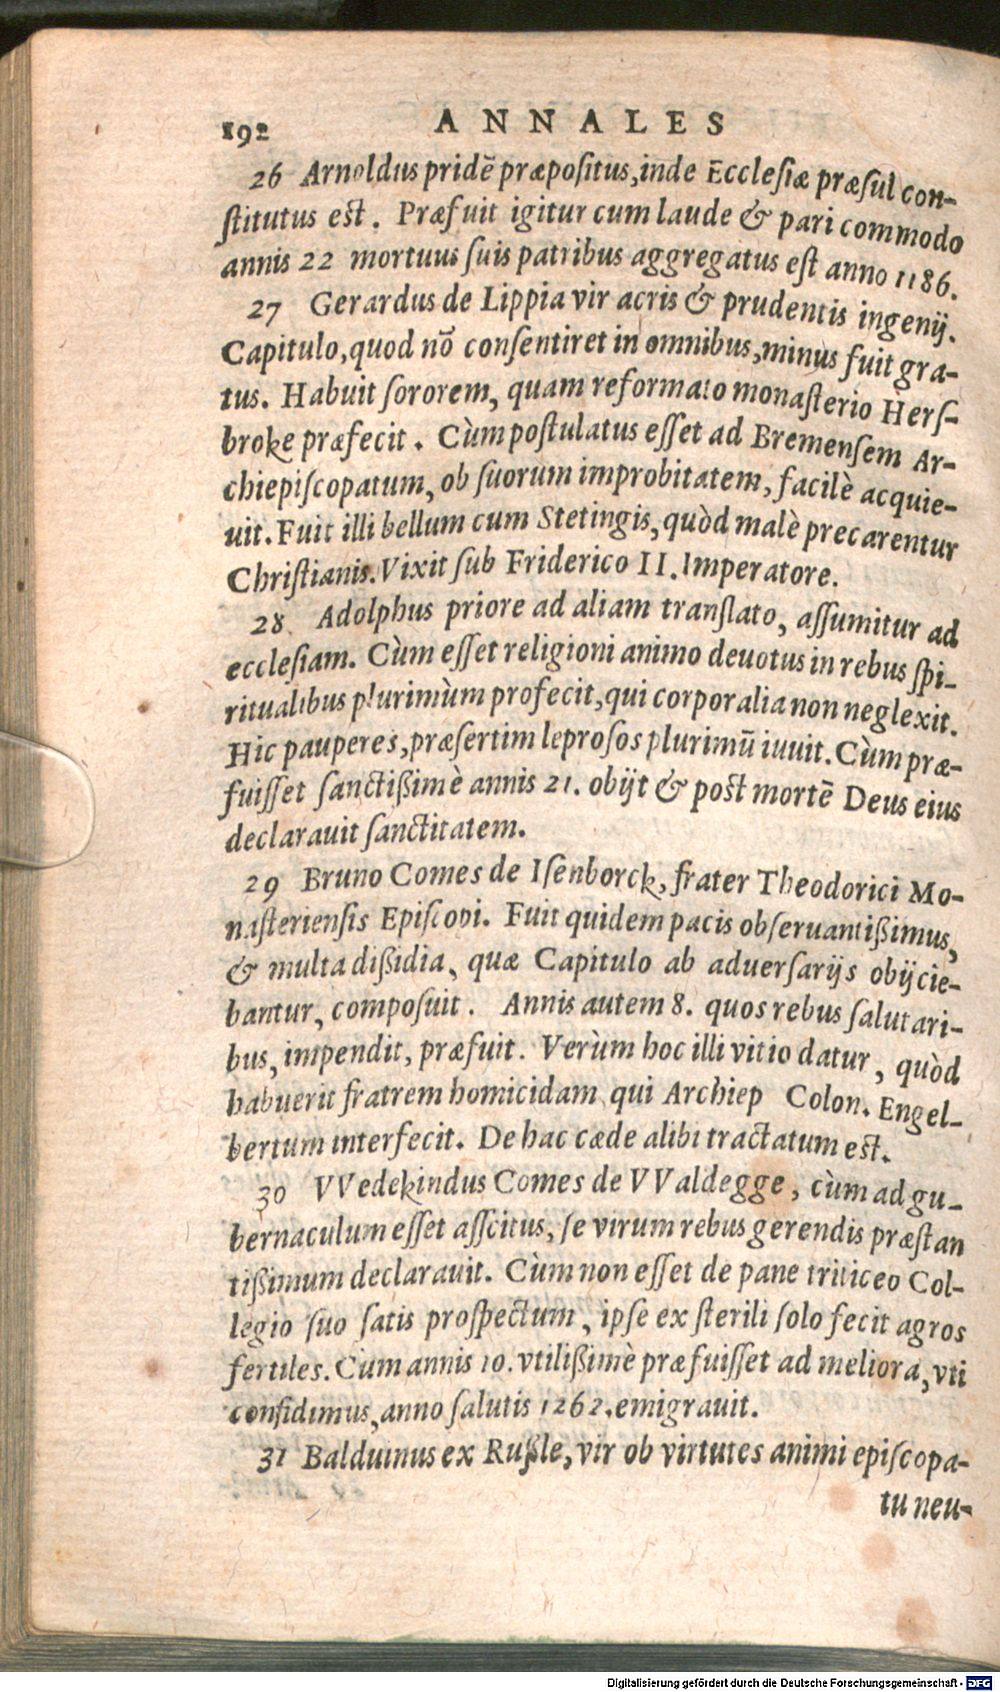 192 ANNALES
26 Arnoldus pridē præpositus, inde Ecclesiæ præsul con-
stitutus est. Præfuit igitur cum laude & pari commodo
annis 22 mortuus suis patribus aggregatus est anno 1186.
27 Gerardus de Lippia vir acris & prudentis ingenij.
Capitulo, quod nō consentiret in omnibus, minus fuit gra-
tus. Habuit sororem, quam reformato monasterio Hers-
broke præfecit. Cùm postulatus esset ad Bremensem Ar-
chiepiscopatum, ob suorum improbitatem, facilè acquie-
uit. Fuit illi bellum cum Stetingis, quòd malè precarentur
Christianis. Vixit sub Friderico II. Imperatore.
28 Adolphus priore ad aliam translato, assumitur ad
ecclesiam. Cùm esset religioni animo deuotus in rebus spi-
ritualibus plurimùm profecit, qui corporalia non neglexit.
Hic pauperes, præsertim leprosos plurimū iuuit. Cùm præ-
fuisset sanctißimè annis 21. obijt & post mortē Deus eius
declarauit sanctitatem.
29 Bruno Comes de Isenborck, frater Theodorici Mo-
nasteriensis Episcopi. Fuit quidem pacis obseruantißimus,
& multa dißidia, quæ Capitulo ab aduersarijs obijcie-
bantur, composuit. Annis autem 8. quos rebus salutari-
bus, impendit, præfuit. Verùm hoc illi vitio datur, quòd
habuerit fratrem homicidam qui Archiep Colon. Engel-
bertum interfecit. De hac cæde alibi tractatum est.
30 VVedekindus Comes de VValdegge, cùm ad gu-
bernaculum esset asscitus, se virum rebus gerendis præstan
tißimum declarauit. Cùm non esset de pane triticeo Col-
legio suo satis prospectum, ipse ex sterili solo fecit agros
fertiles. Cum annis 10. vtilißimè præfuisset ad meliora, vti
confidimus, anno salutis 1262. emigrauit.
31 Balduinus ex Rußle, vir ob virtutes animi episcopa-
tu neu-
Digitalisierung gefördert durch die Deutsche Forschungsgemeinschaft - DFG